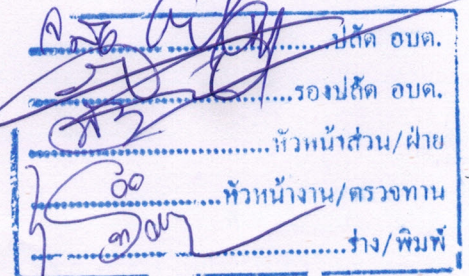 ....................ปลัด อบต.
....................รองปลัด อบต.
....................หัวหน้าส่วน/ฝ่าย
....................หัวหน้างาน/ตรวจทาน
....................ร่าง/พิมพ์